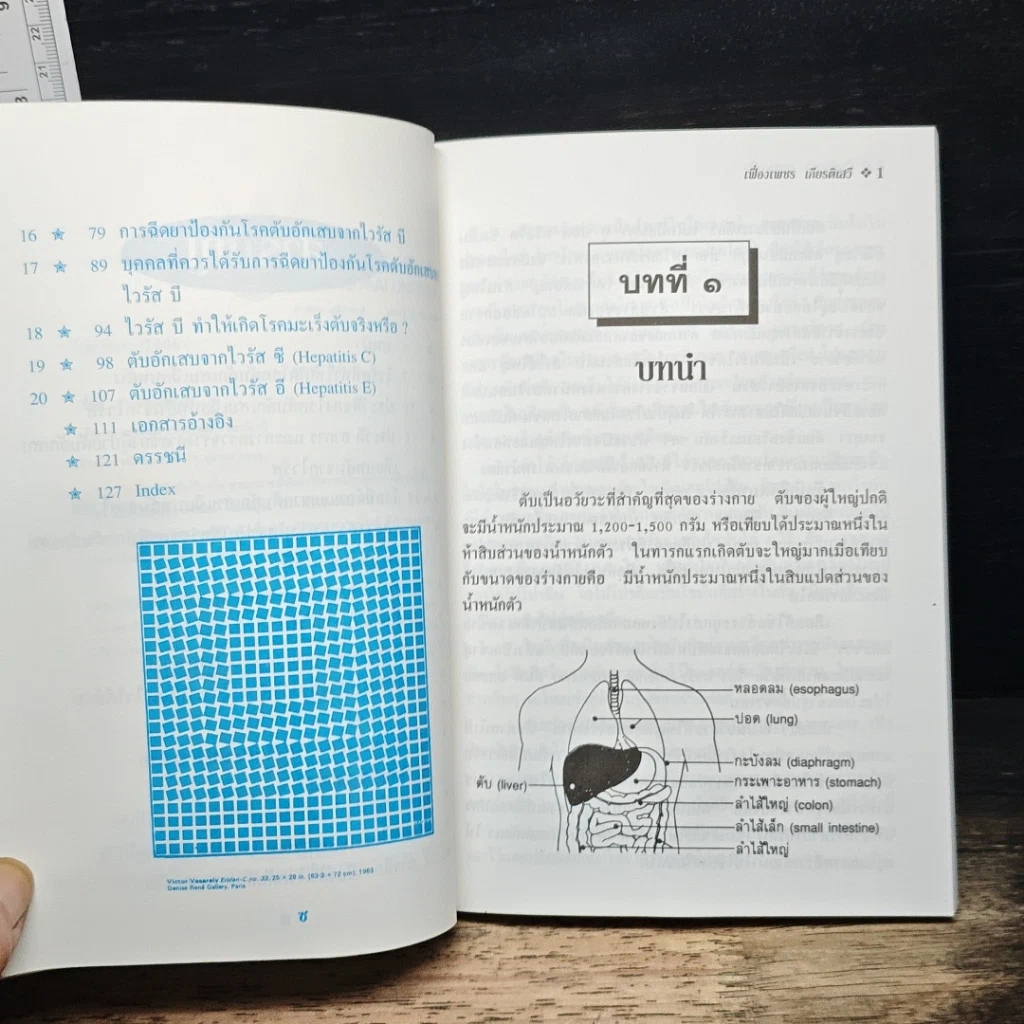 16 ★ 79 การฉีดยาป้องกันโรคตับอักเสบจากไวรัส บี
17 ★ 89 บุคคลที่ควรได้รับการฉีดยาป้องกันโรคตับอักเสบ
ไวรัส บี
18 ★ 94 ไวรัส บี ทำให้เกิดโรคมะเร็งตับจริงหรือ ?
19 ★ 98 ตับอักเสบจากไวรัส ซี (Hepatitis C)
20 ★ 107 ตับอักเสบจากไวรัส อี (Hepatitis E)
★ 111 เอกสารอ้างอิง
★ 121 ดรรชนี
★ 127 Index
Victor Vasarely Eridan-C no. 33, 25 × 28 in. (63.5 × 72 cm), 1963
Denise René Gallery, Paris
ซ
เฟื่องเพชร เกียรติเสวี ❖ 1
บทที่ ๑
บทนำ
ตับเป็นอวัยวะที่สำคัญที่สุดของร่างกาย ตับของผู้ใหญ่ปกติ
จะมีน้ำหนักประมาณ 1,200-1,500 กรัม หรือเทียบได้ประมาณหนึ่งใน
ห้าสิบส่วนของน้ำหนักตัว ในทารกแรกเกิดตับจะใหญ่มากเมื่อเทียบ
กับขนาดของร่างกายคือ มีน้ำหนักประมาณหนึ่งในสิบแปดส่วนของ
น้ำหนักตัว
หลอดลม (esophagus)
ปอด (lung)
กะบังลม (diaphragm)
ตับ (liver)
กระเพาะอาหาร (stomach)
ลำไส้ใหญ่ (colon)
ลำไส้เล็ก (small intestine)
ลำไส้ใหญ่
21
22